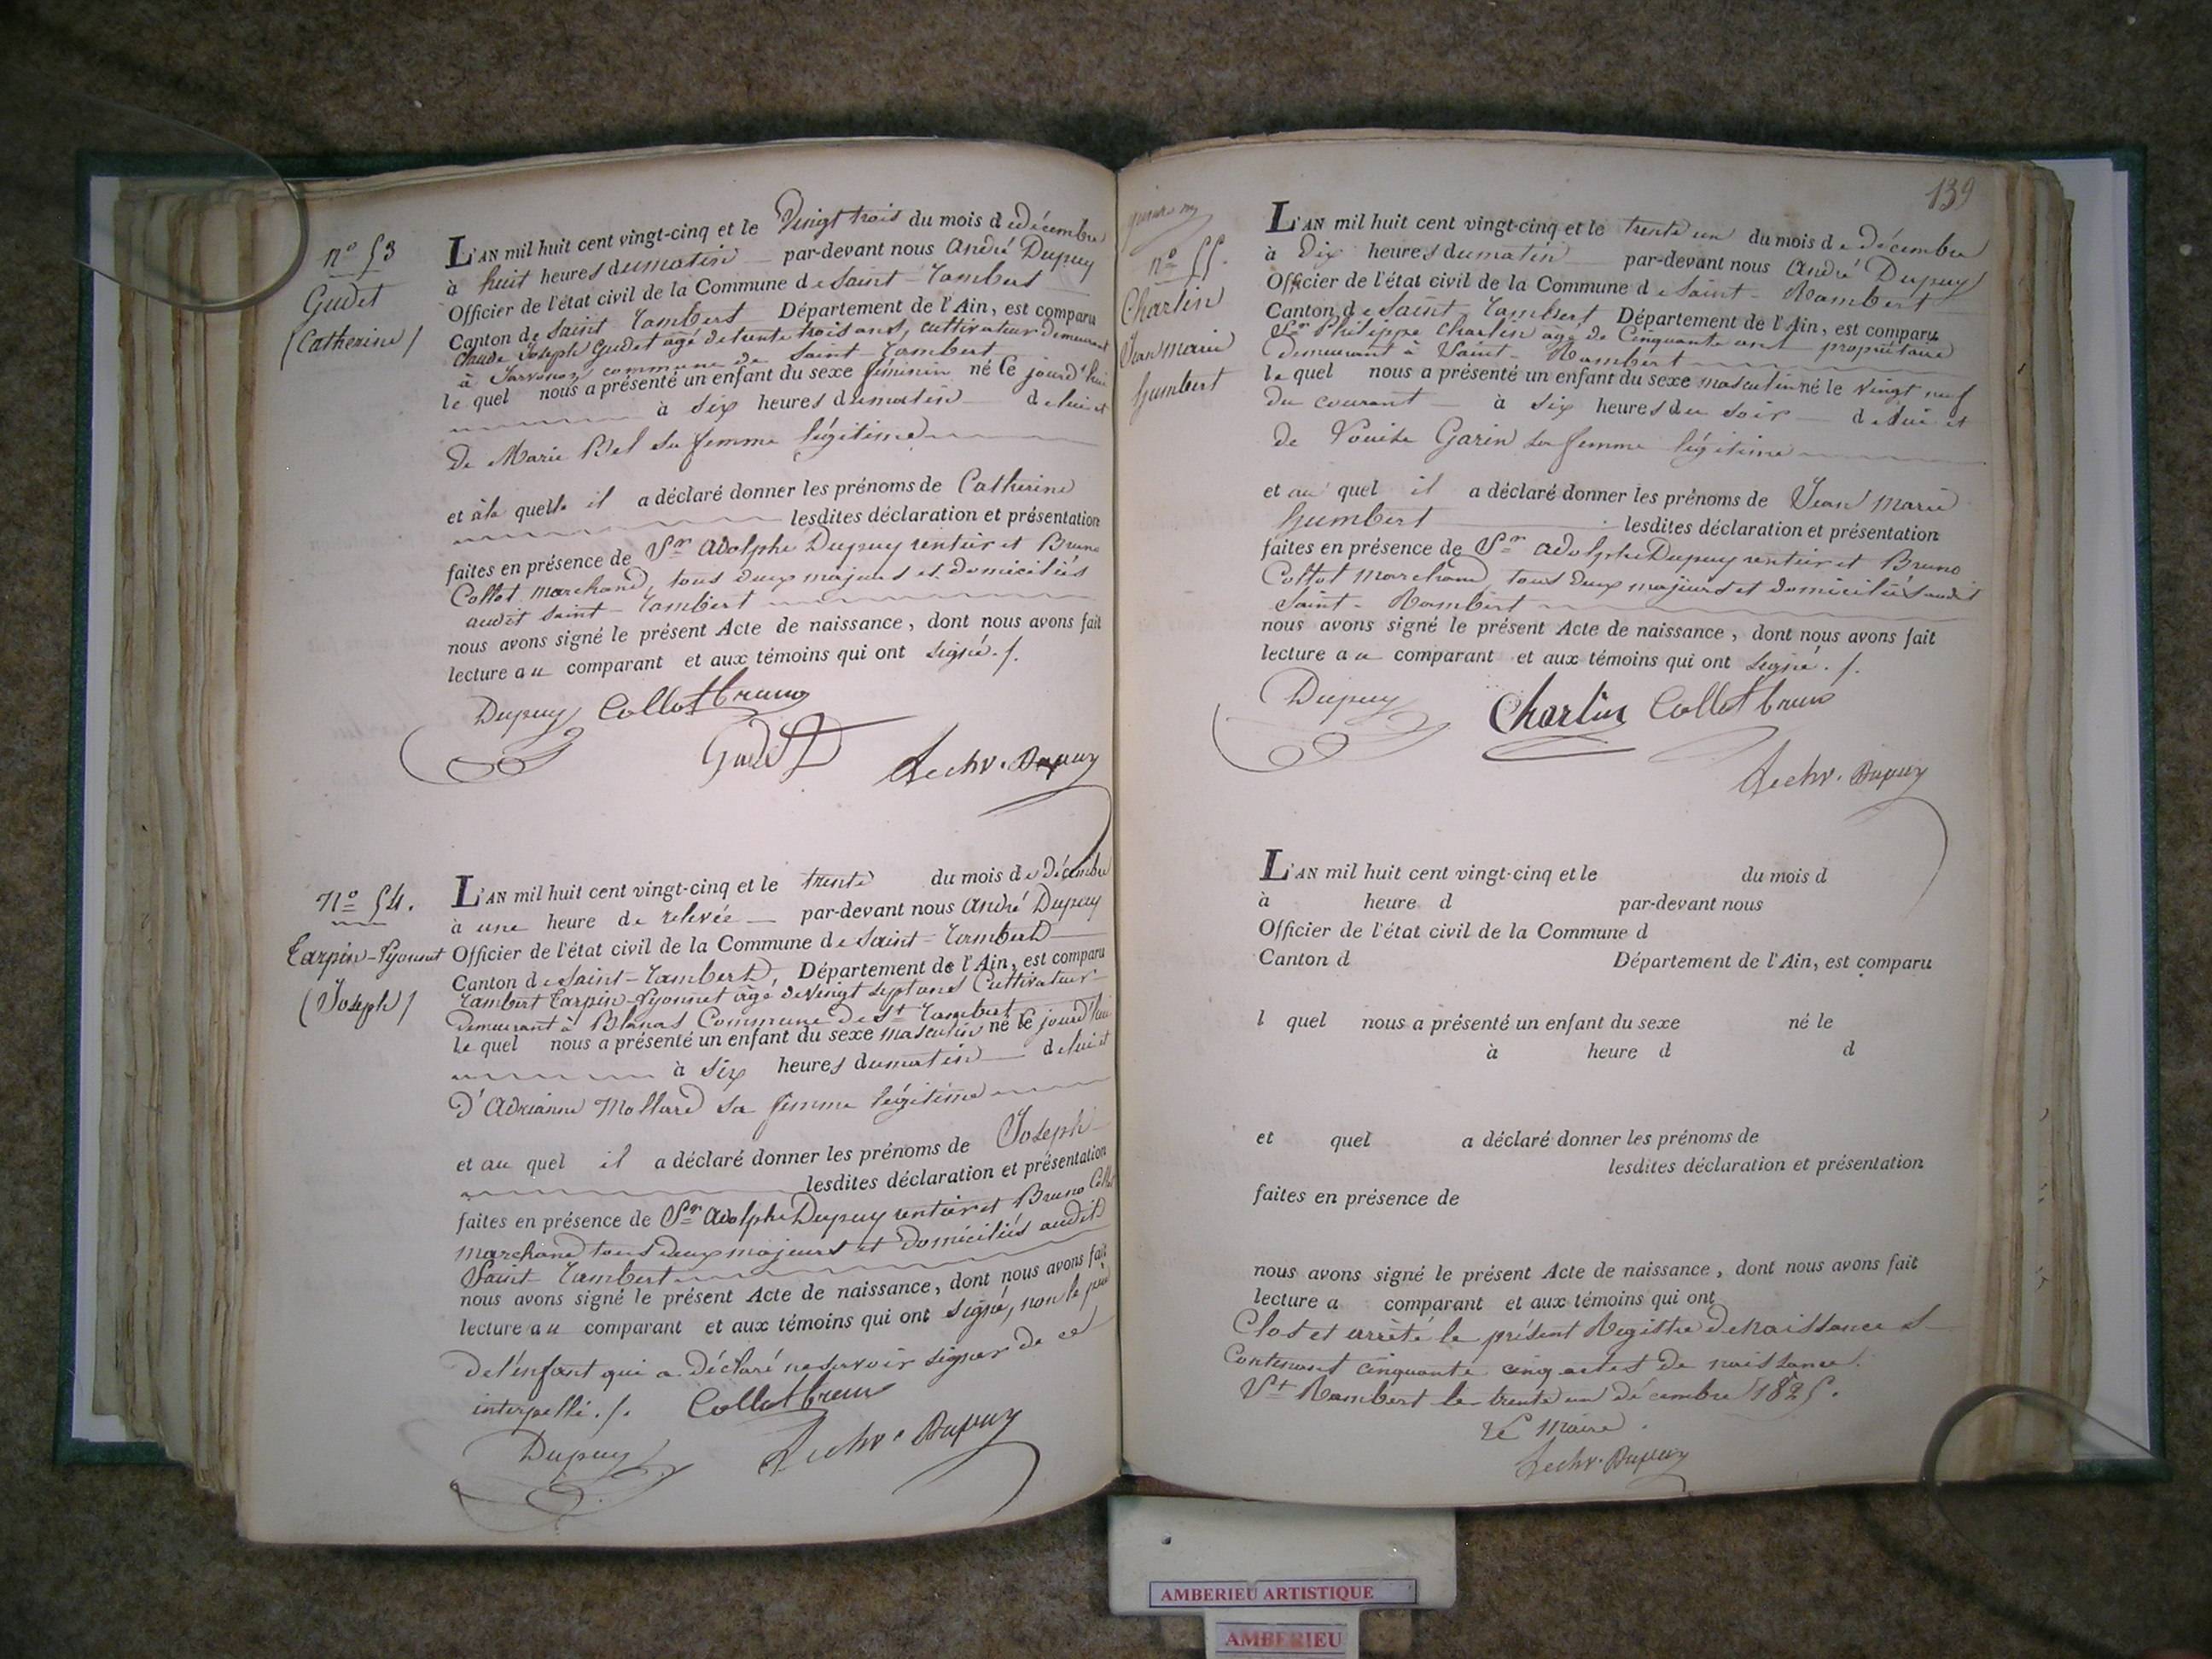 n° 53
Gudet
(Catherine)
L'AN mil huit cent vingt-cinq et le Vingt trois du mois de décembre
à huit heures du matin par-devant nous André Dupuy
Officier de l'état civil de la Commune de Saint-Rambert
Canton de Saint Rambert Département de l'Ain, est comparu
Claude Joseph Gudet âgé de trente trois ans, cultivateur demeurant
à commune de Saint-Rambert
le quel nous a présenté un enfant du sexe féminin né le jourd'hui
à six heures du matin de lui et
de Marie Bel sa femme légitime
et à la quelle il a déclaré donner les prénoms de Catherine
lesdites déclaration et présentation
faites en présence de Sr Adolphe Dupuy rentier et Bruno
Collot marchand, tous deux majeurs et domiciliés
audit Saint-Rambert
nous avons signé le présent Acte de naissance, dont nous avons fait
lecture au comparant et aux témoins qui ont signé ./.
Dupuy Collot bruno
Gudet
Dupuy
N° 54.
Tarpin-Lyonnet
(Joseph)
L'AN mil huit cent vingt-cinq et le trente du mois de décembre
à une heure de relevée par-devant nous André Dupuy
Officier de l'état civil de la Commune de Saint-Rambert
Canton de Saint-Rambert, Département de l'Ain, est comparu
Rambert Tarpin-Lyonnet âgé de vingt sept ans Cultivateur
demeurant à Blanas Commune de St Rambert
le quel nous a présenté un enfant du sexe masculin né le jourd'hui
à six heures du matin de lui et
d'Adrianne Mollard sa femme légitime
et au quel il a déclaré donner les prénoms de Joseph
lesdites déclaration et présentation
faites en présence de Sr Adolphe Dupuy rentier et Bruno Collot
marchand tous deux majeurs et domiciliés audit
Saint Rambert
nous avons signé le présent Acte de naissance, dont nous avons fait
lecture au comparant et aux témoins qui ont signé, non le père
de l'enfant qui a déclaré ne savoir signer de ce
interpellé ./. Collot bruno
Dupuy Dupuy
139
n° 55.
Charlin
Jean Marie
humbert
L'AN mil huit cent vingt-cinq et le trente un du mois de décembre
à Dix heures du matin par-devant nous André Dupuy
Officier de l'état civil de la Commune de Saint-Rambert
Canton de Saint-Rambert Département de l'Ain, est comparu
Sr Philippe Charlin âgé de Cinquante ans propriétaire
demeurant à Saint-Rambert
le quel nous a présenté un enfant du sexe masculin né le vingt neuf
du courant à six heures du soir de lui et
de Louise Garin sa femme légitime
et au quel il a déclaré donner les prénoms de Jean Marie
humbert lesdites déclaration et présentation
faites en présence de Sr Adolphe Dupuy rentier et Bruno
Collot marchand tous deux majeurs et domiciliés audit
Saint-Rambert
nous avons signé le présent Acte de naissance, dont nous avons fait
lecture au comparant et aux témoins qui ont signé ./.
Dupuy Charlin Collot bruno
Dupuy
L'AN mil huit cent vingt-cinq et le du mois d
à heure d par-devant nous
Officier de l'état civil de la Commune d
Canton d Département de l'Ain, est comparu
l quel nous a présenté un enfant du sexe né le
à heure d d
et quel a déclaré donner les prénoms de
lesdites déclaration et présentation
faites en présence de
nous avons signé le présent Acte de naissance, dont nous avons fait
lecture a comparant et aux témoins qui ont
Clos et arrêté le présent Registre de naissances
Contenant cinquante cinq actes de naissance.
St Rambert le trente un décembre 1825.
Le Maire
Dupuy
AMBERIEU ARTISTIQUE
AMBERIEU